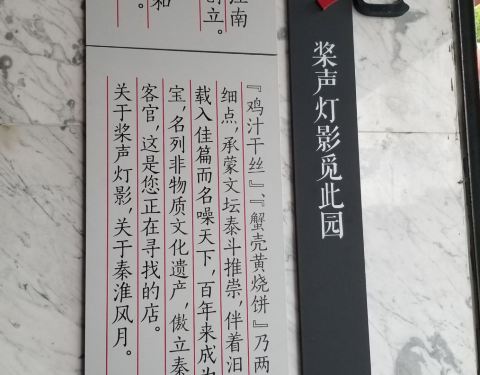 桨声灯影觅此园
江南
立。
和
。
『鸡汁干丝』、『蟹壳黄烧饼』乃两
细点，承蒙文坛泰斗推崇，伴着汩
载入佳篇而名噪天下，百年来成为
宝，名列非物质文化遗产，傲立秦
客官，这是您正在寻找的店。
关于桨声灯影，关于秦淮风月。